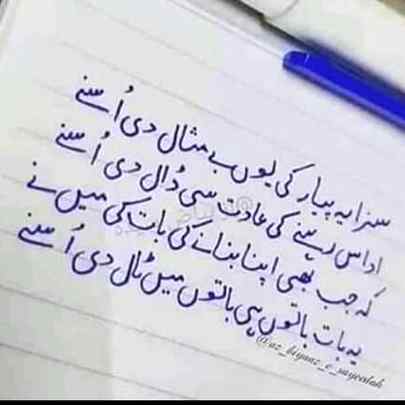 سزا یہ پیار کی یوں بے مثال دی اُسنے
اداس رہنے کی عادت سی ڈال دی اُسنے
کہ جب بھی اپنا بنانے کی بات کی میں نے
یہ بات باتوں ہی باتوں میں ٹال دی اُسنے